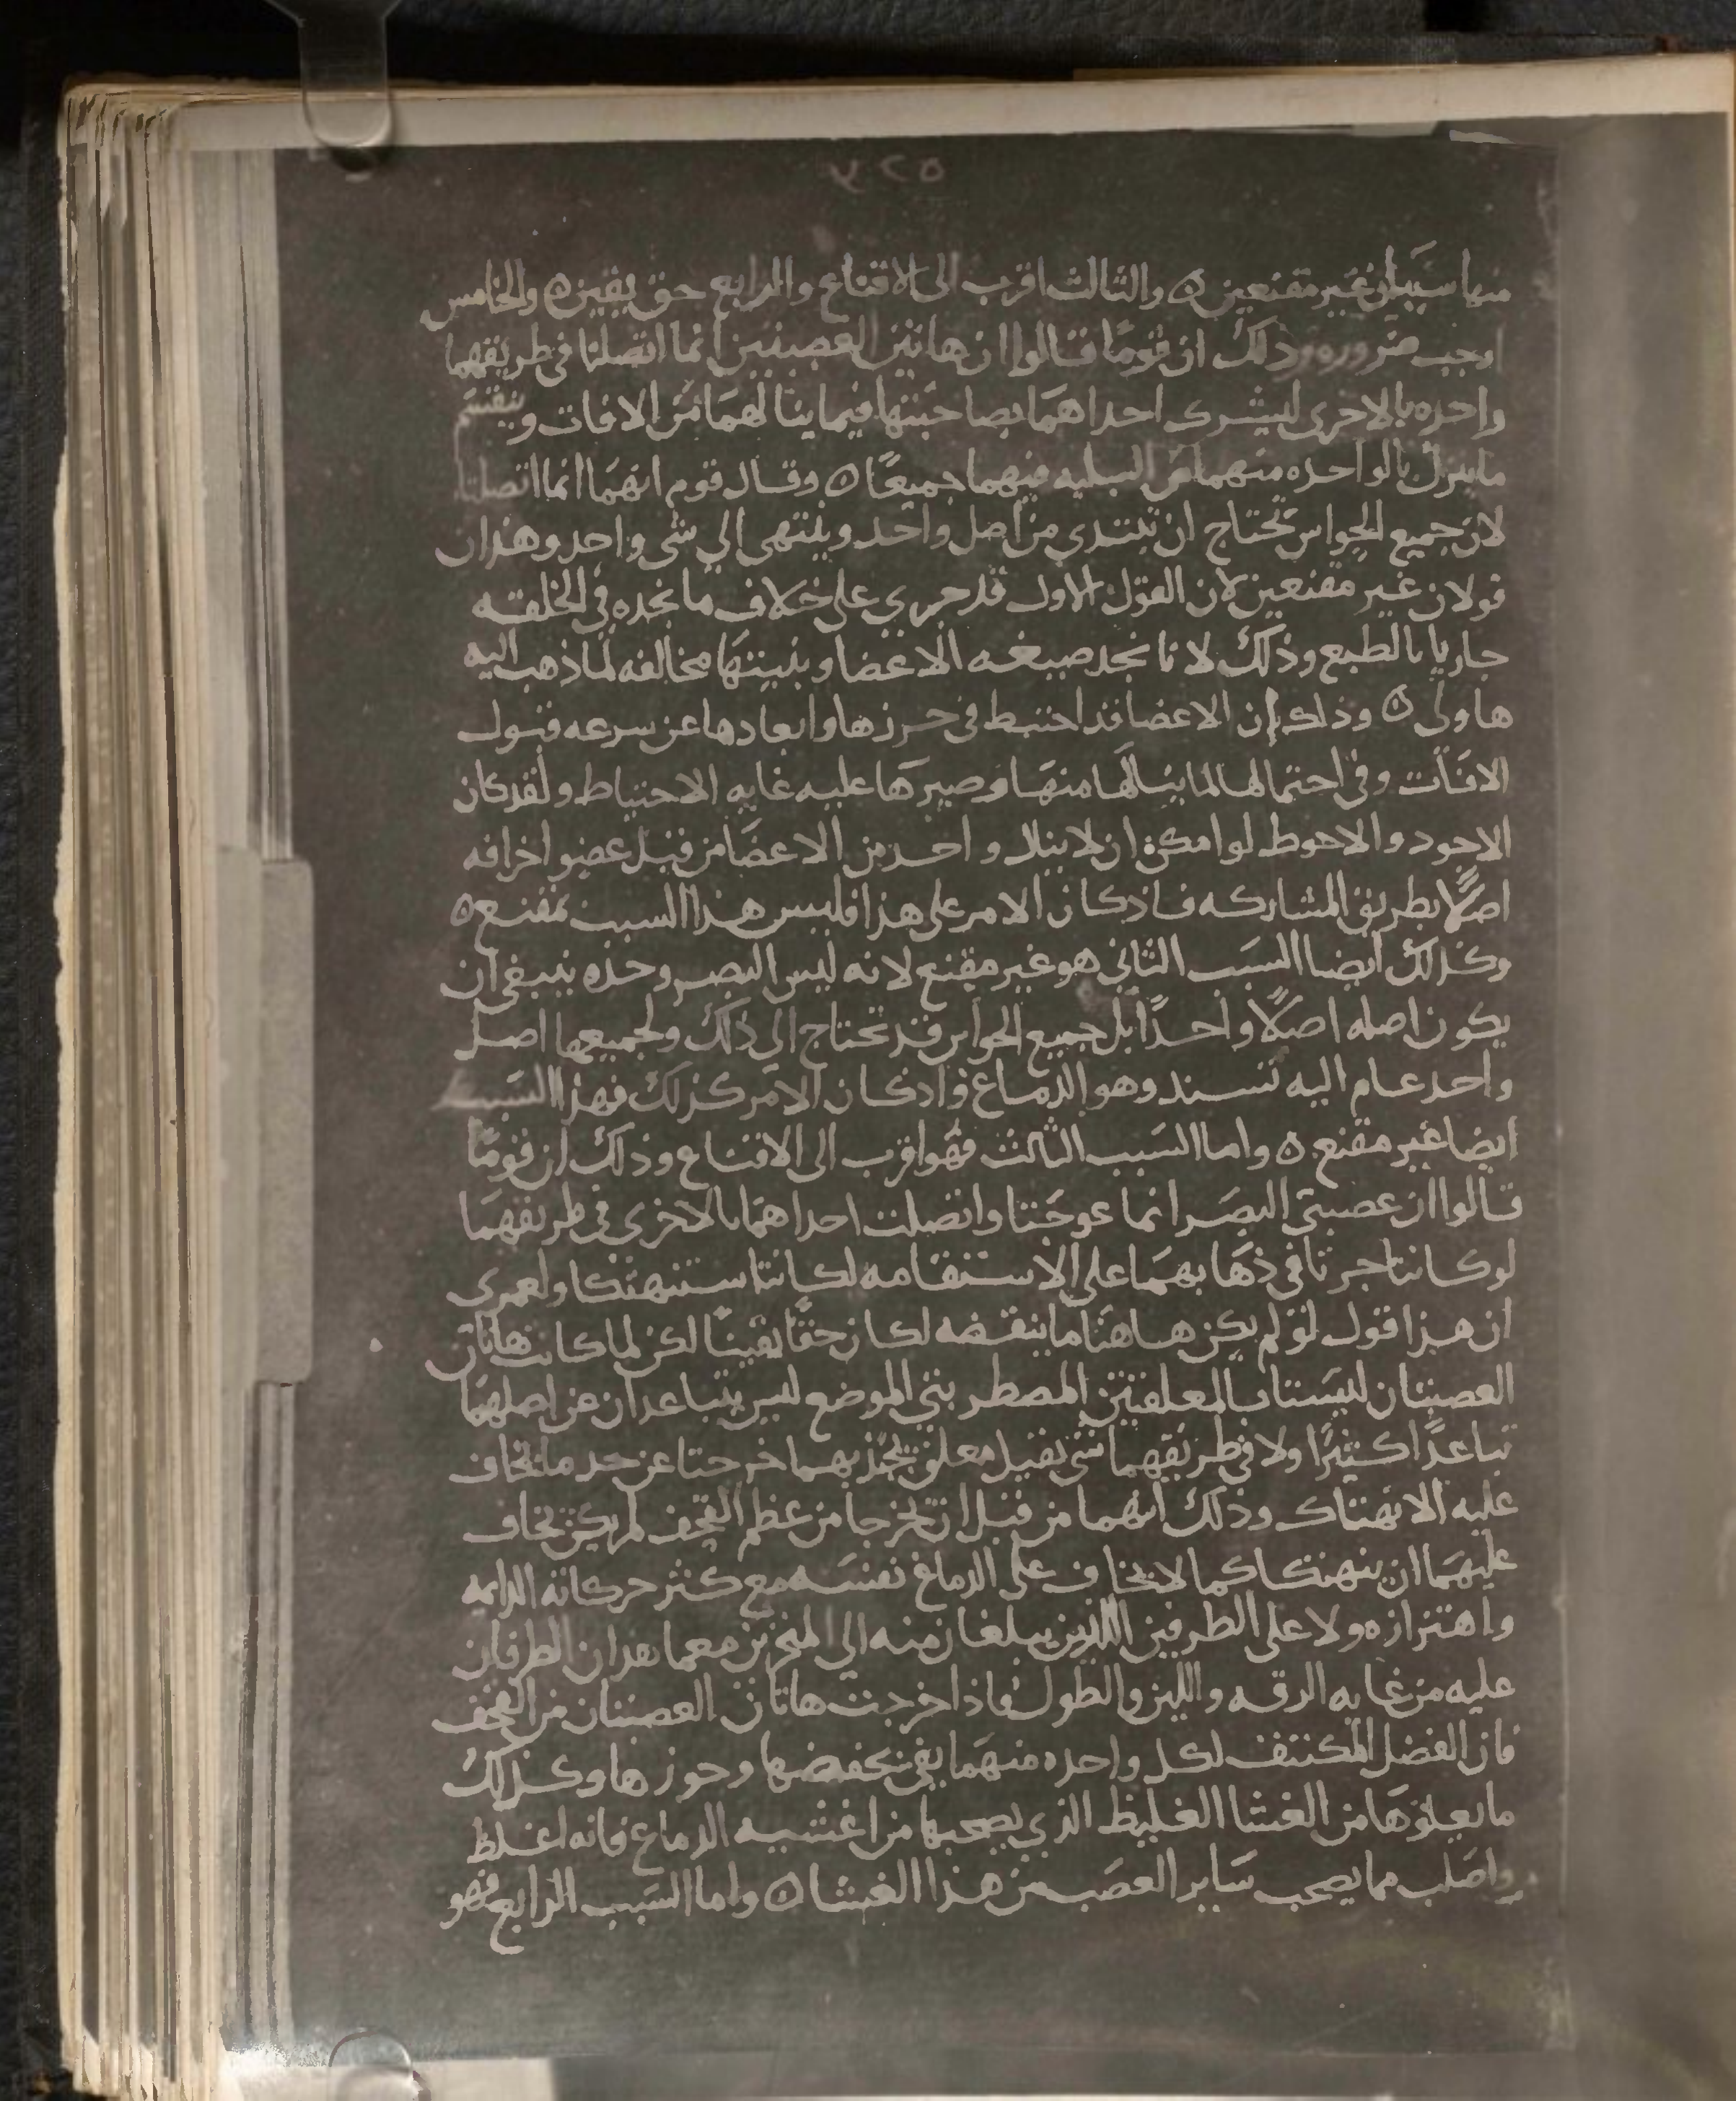 ٥٢٥
منها سببان غير مقنعين ۵ والثالث اقرب الى الاقناع والرابع حق يقين ۵ والخامس
اوجب ضروره وذلك ان قوما قالوا ان هاتين العصبتين انما اتصلتا في طريقهما
واحده بالاخرى ليشرك احداهما بصاحبتها فيما ينالهما من الافات وينقسم
ما ينزل بالواحده منهما من البليه فيهما جميعًا ۵ وقال قوم انهما انما اتصلتا
لان جميع الحواس تحتاج ان تبتدي من اصل واحد وينتهي الي شي واحد وهذان
قولان غير مقنعين لان القول الاول قد جرى على خلاف ما نجده في الخلقه
جاريا بالطبع وذلك لانا نجد صيغه الاعضا وبنيتها مخالفه لما ذهب اليه
هاولى ۵ وذلك ان الاعضا قد احتيط في حرزها وابعادها عن سرعه قبول
الافات وفي احتمالها لما ينالها منها وصبرها عليه غايه الاحتياط ولقد كان
الاجود والاحوط لو امكن ان لا ينال واحد من الاعضا من قبل عضو اخر افه
اصلًا بطريق المشاركه فاذ كان الامر على هذا فليس هذا السبب بمقنع ۵
وكذلك ايضا السبب الثاني هو غير مقنع لانه ليس البصر وحده ينبغي ان
يكون اصله اصلًا واحدًا بل جميع الحواس قد تحتاج الى ذلك ولجميعها اصل
واحد عام اليه تستند وهو الدماغ واذ كان الامر كذلك فهذا السبب
ايضا غير مقنع ۵ واما السبب الثالث فهو اقرب الى الاقناع وذلك ان قومًا
قالوا ان عصبتي البصر انما عوجتا واتصلت احداهما بالاخرى في طريقهما
لو كانتا جرتا في ذهابهما على الاستقامه لكانتا ستنهتكا ولعمري
ان هذا قول لو لم يكن هاهنا ما ينقضه لكان حقًا يقينًا لكن لما كانت هاتان
العصبتان ليستا بالمعلقتين المضطربتي الموضع ليس يتباعدان عن اصلهما
تباعدًا كثيرًا ولا في طريقهما شي ثقيل معلق يجذبهما خرجتا عن حد ما يخاف
عليه الانهتاك وذلك انهما من قبل ان تخرجا من عظم القحف لم يكن يخاف
عليهما ان ينهتكا كما لا يخاف على الدماغ نفسه مع كثر حركاته الدايمه
واهتزازه ولا على الطرفين اللذين يبلغان منه الي المنخرين مع ما هدان الطرفان
عليه من غايه الرقه واللين والطول فاذا خرجت هاتان العصبتان من القحف
فان الفضل المكتنف لكل واحده منهما يفي بحفضها وحوزها وكذلك
ما يعلوها من الغشا الغليظ الذي يصحبها من اغشيه الدماغ فانه اغلظ
واصلب مما يصحب ساير العصب من هذا الغشا ۵ واما السبب الرابع فهو